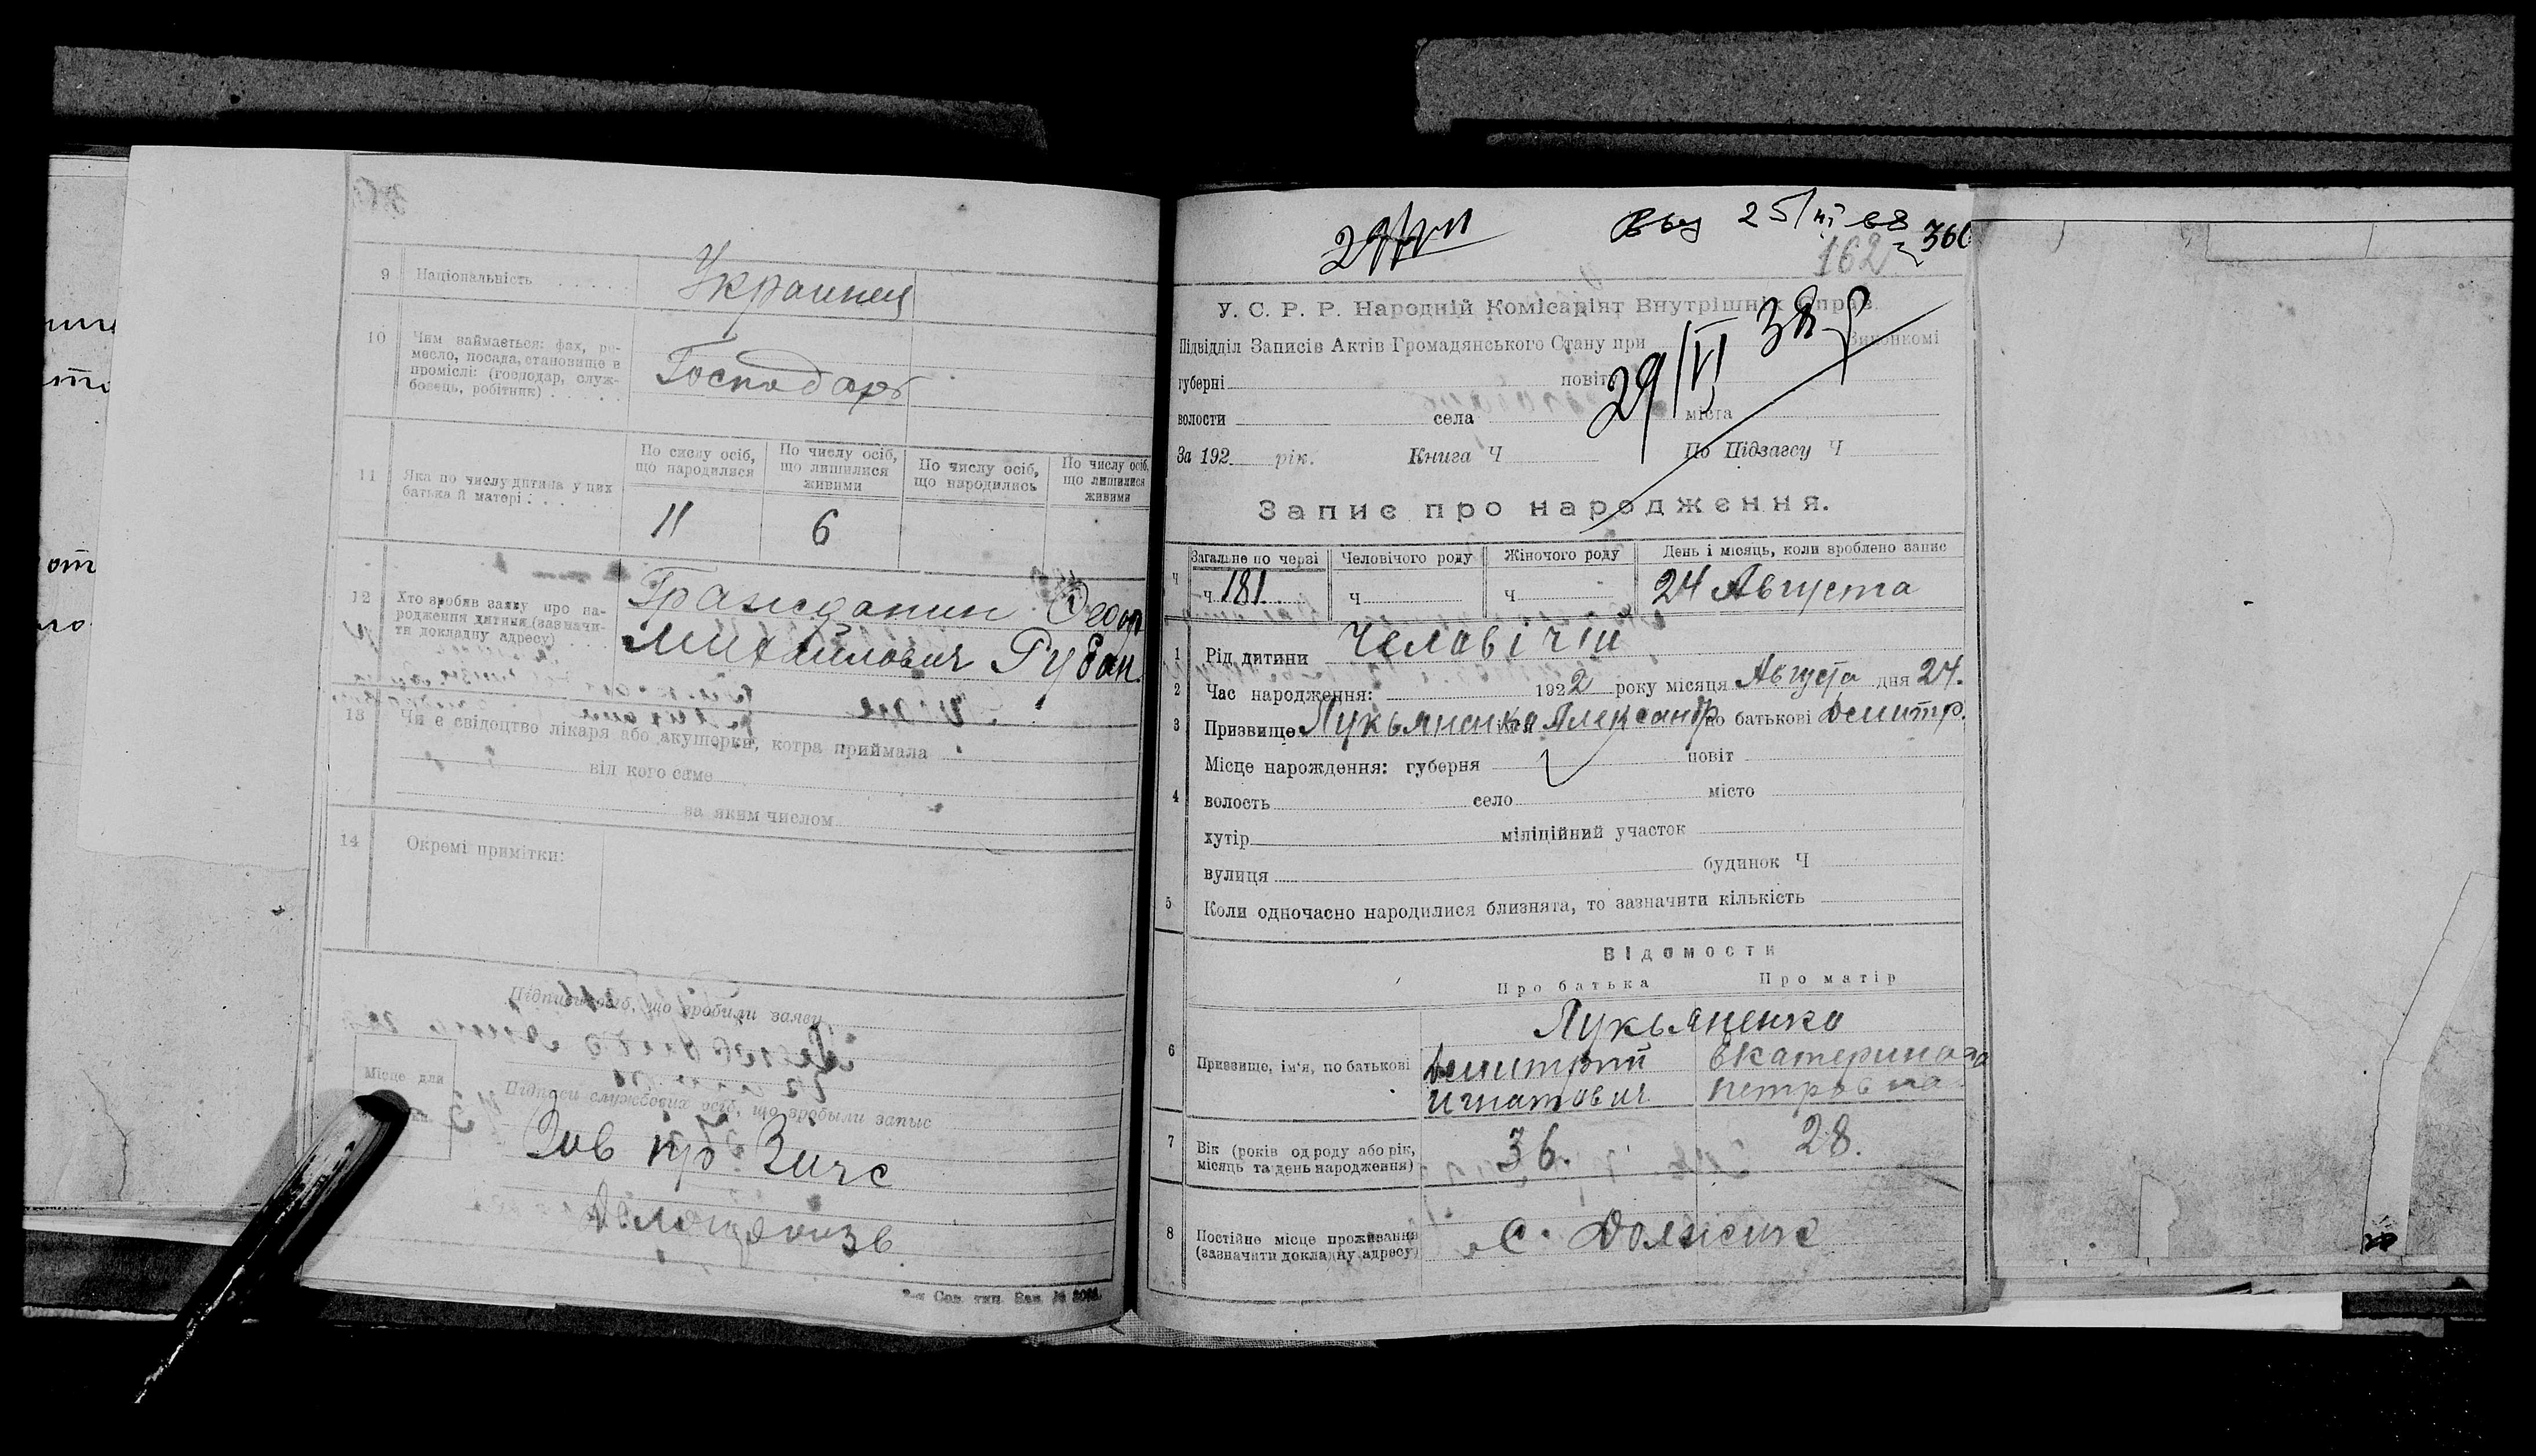 9 Національність Украинец
10 Чим займається: фах, ре-
месло, посада, становище в
проміслі: (господар, служ-
бовець, робітник) Господарь
11 Яка по числу дитина у цих
батька й матері:
По числу осіб, що народилися
По числу осіб, що лишилися живими
По числу осіб, що народились
По числу осіб, що лишилися живими
11 6
12 Хто зробив заяву про на-
родження дитини (зазначи-
ти докладну адресу)
Гражданин Федор
Михайлович Рубан.
13 Чи є свідоцтво лікаря або акушерки, котра приймала
від кого саме
за яким числом
14 Окремі примітки:
Підписи осіб, що зробили заяву
Місце для
Підписи службових осіб, що зробили запис
Зав пр Загс
2-я Сов. тип. Зак. №
25/VI 38
162 360
У. С. Р. Р. Народній Комісаріят Внутрішніх Справ.
Підвідділ Записів Актів Громадянського Стану при Виконкомі
29/VI 38 р
губерні повіту
волости села міста
За 192 рік. Книга Ч По Підзагсу Ч
Запис про народження.
Ч Загальне по черзі Человічого роду Жіночого роду День і місяць, коли зроблено запис
ч 181. ч ч 24 Августа
1 Рід дитини Человічій
2 Час народження: 1922 року місяця Августа дня 24.
3 Призвище Лукьяненко імя Александр по батькові Демитр.
4 Місце народження: губерня повіт
волость село місто
хутір міліційний участок
вулиця будинок Ч
5 Коли одночасно народилися близнята, то зазначити кількість
Відомости
Про батька Про матір
6 Призвище, ім'я, по батькові
Лукьяненко
Демитрий Екатерина
Игнатович Петровна
7 Вік (років од роду або рік,
місяць та день народження) 36. 28.
8 Постійне місце проживання
(зазначити докладну адресу) с. Должик